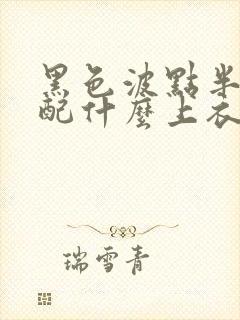 黑色波點半
配什麼上衣
瑞雪青